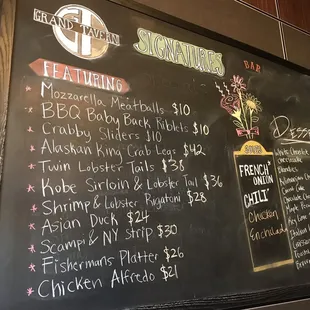 GT
GRAND TAVERN
SIGNATURES
BAR
FEATURING
Mozzarella Meatballs $10
BBQ Baby Back Riblets $10
Crabby Sliders $10
Alaskan King Crab Legs $42
Twin Lobster Tails $38
Kobe Sirloin & Lobster Tail $36
Shrimp & Lobster Rigatoni $28
Asian Duck $24
Scampi & NY Strip $30
Fishermans Platter $26
Chicken Alfredo $21
FRENCH
ONION
CHILI
Chicken
Enchilada
White Chocolate
Cheesecake
Carrot Cake
Chocolate